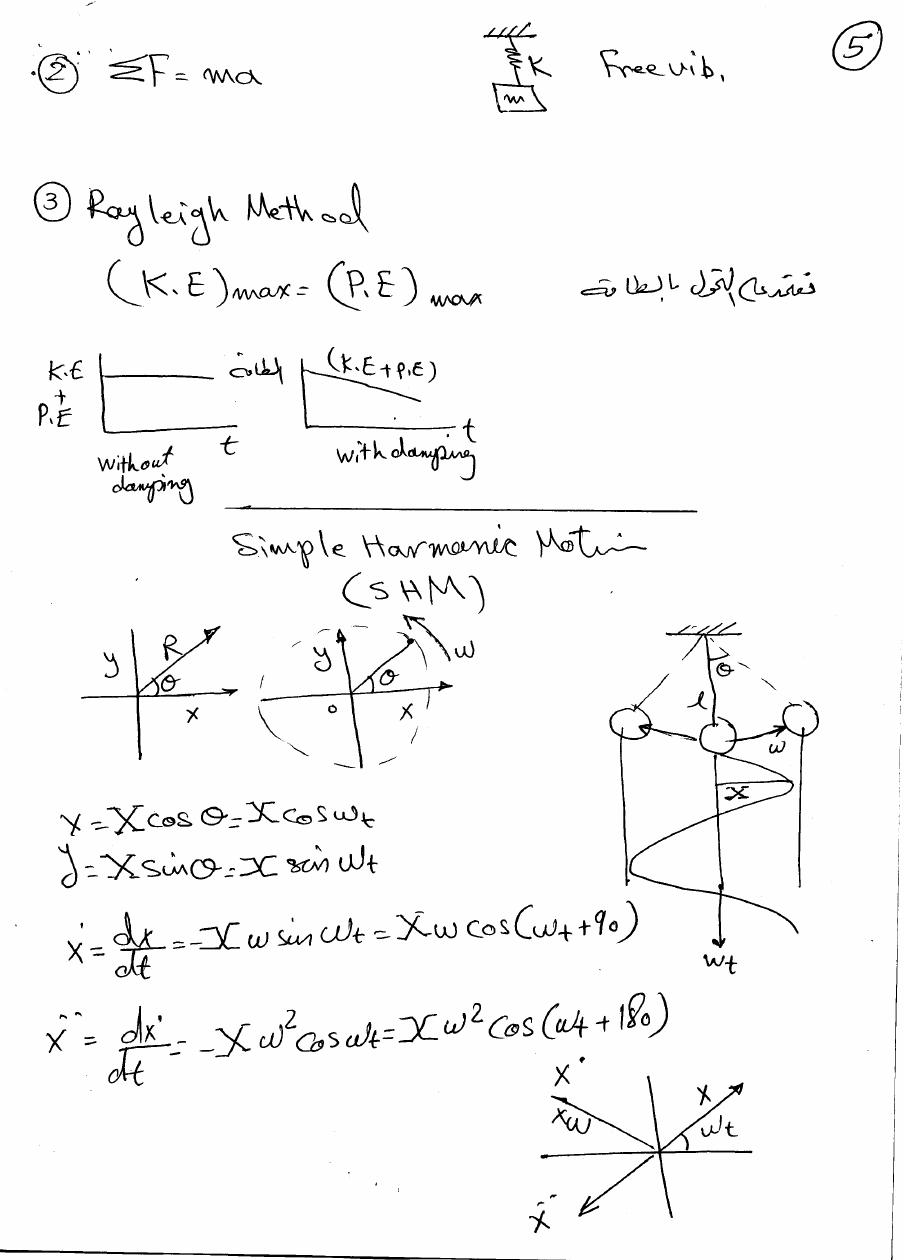 5
② ΣF = ma
K
m
Free vib.
③ Rayleigh Method
(K.E)max = (P.E) max
K.E
+
P.E
t
without
damping
الطاقة
(K.E + P.E)
t
with damping
Simple Harmonic Motion
(SHM)
y R θ x
y θ ω o x
θ
l
ω
X
ωt
x = X cos θ = X cos ωt
y = X sin θ = X sin ωt
ẋ = dx/dt = -X ω sin ωt = X ω cos(ωt + 90)
ẍ = dẋ/dt = -X ω² cos ωt = X ω² cos(ωt + 180)
ẋ
xω
x
ωt
ẍ